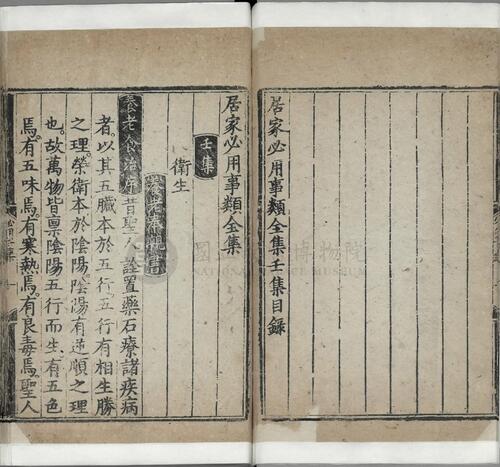 居家必用事類全集壬集目錄
居家必用事類全集
壬集
衛生
養老奉親書
養老食治序 昔聖人詮置藥石療諸疾病
者。以其五臟本於五行五行有相生勝
之理。榮衛本於陰陽。陰陽有逆順之理
也。故萬物皆稟陰陽五行而生。有五色
焉。有五味焉。有寒熱焉。有良毒焉。聖人
NATIONAL PALACE MUSEUM